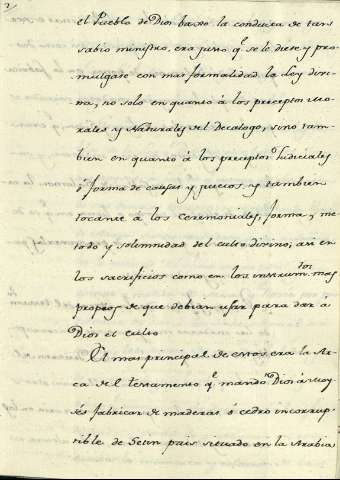 el Pueblo de Dios baxo la conducta de tan
sabio ministro, era justo q.e se le diese y pro-
mulgase con mas formalidad la Ley divi-
na, no solo en quanto á los preceptos Mo-
rales y Naturales del Decalogo, sino tam-
bien en quanto á los preceptos Judiciales
ó forma de causas y juicios, y tambien
tocante á los Ceremoniales, forma, me-
todo y solemnidad del culto divino; asi en
los sacrificios como en los instrum.tos mas
propios de que debian usar para dar á
Dios el culto
El mas principal de estos, era la Ar-
ca del testamento q.e mandó Dios á Moy-
sés fabricar de maderas ó cedro incorrup-
tible de Setin pais situado en la Arabia